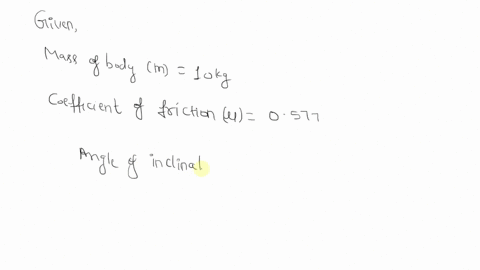 Given,
Mass of body (m) = 10kg
Coefficient of friction (μ) = 0.577
Angle of inclinat